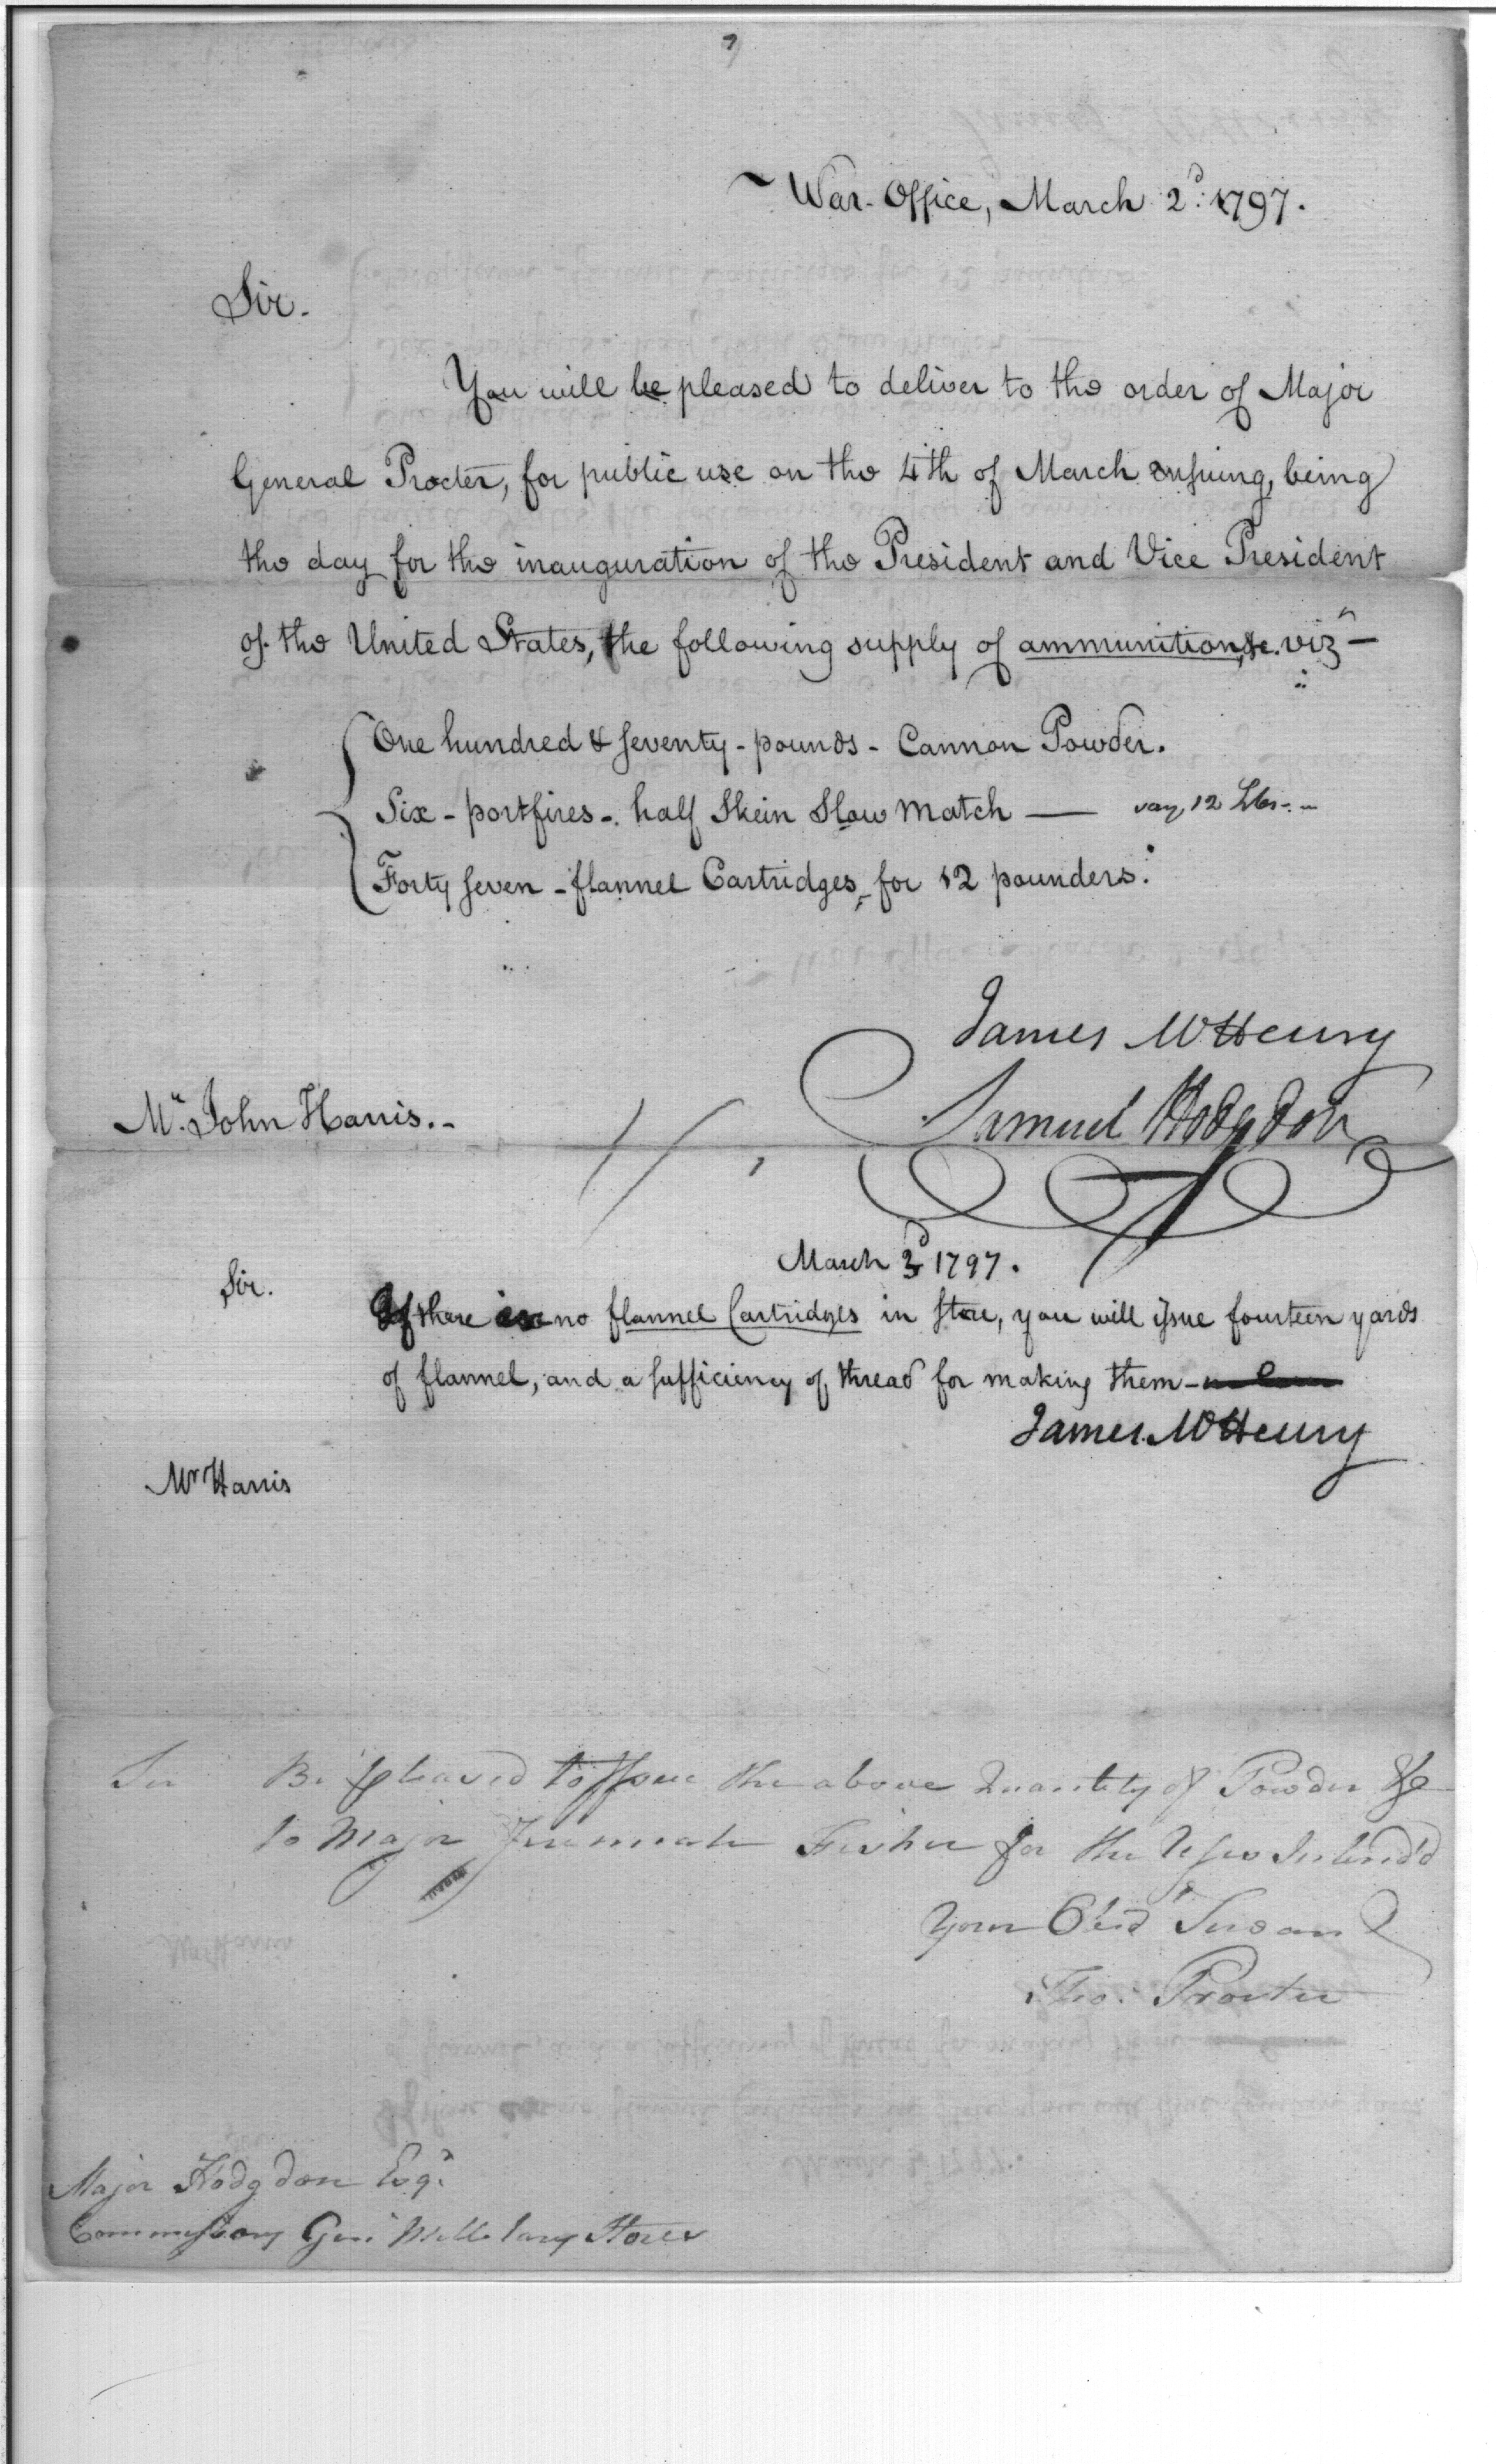 War-Office, March 2d: 1797.
Sir.
You will be pleased to deliver to the order of Major
General Procter, for public use on the 4th of March ensuing, being
the day for the inauguration of the President and Vice President
of the United States, the following supply of ammunition, &c. viz—
One hundred & seventy-pounds-Cannon Powder.
Six-portfires-. half Skein Slow Match — say, 12 Lbs-.-
Forty seven-flannel Cartridges, for 12 pounders.
James McHenry
Samuel Hodgdon
Mr. John Harris.-
March 3d 1797.
Sir.
If there are no flannel Cartridges in Store, you will issue fourteen yards
of flannel, and a sufficiency of thread for making them-
James McHenry
Mr Harris
Sir Be pleased to Issue the above Quantity of Powder &c
to Major Jeremiah Fisher for the Uses Intend'd
Your Obed Servant
Tho: Procter
Major Hodgdon Esqr.
Commissary Genl Millitary Stores